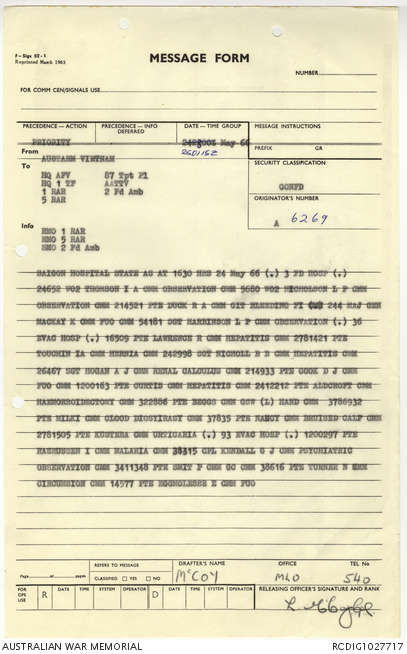 F-Sigs 52-1
Reprinted March 1963
MESSAGE FORM
NUMBER
FOR COMM CEN/SIGNALS USE
PRECEDENCE—ACTION
PRIORITY
PRECEDENCE—INFO
DEFERRED
DATE—TIME GROUP
May 66
250115Z
MESSAGE INSTRUCTIONS
PREFIX GR
From
AUSTARM VIETNAM
To
HQ AFV 87 Tpt Pl
HQ 1 TF AATTV
1 RAR 2 Fd Amb
5 RAR
SECURITY CLASSIFICATION
CONFD
ORIGINATOR'S NUMBER
A 6269
Info
RMO 1 RAR
RMO 5 RAR
SMO 2 Fd Amb
SAIGON HOSPITAL STATE AS AT 1630 HRS 24 May 66 (.) 3 FD HOSP (.)
24652 WO2 THOMSON I A CMM OBSERVATION CMM 5680 WO2 NICHOLSON L P CMM
OBSERVATION CMM 214521 PTE DUCK R A CMM GIT BLEEDING FI 244 MAJ GEN
MACKAY K CMM FUO CMM 54181 SGT HARBINSON L P CMM OBSERVATION (.) 36
EVAC HOSP (.) 16509 PTE LAWRENCE R CMM HEPATITIS CMM 2781421 PTE
TOUCHIN IA CMM HERNIA CMM 242998 SGT NICHOLL B D CMM HEPATITIS CMM
26467 SGT HOGAN A J CMM RENAL CALCULUS CMM 214933 PTE COOK D J CMM
FUO CMM 1200163 PTE CURTIS CMM HEPATITIS CMM 2412212 PTE ALDCROFT CMM
HAEMOROIDECTOMY CMM 322886 PTE BEGGS CMM GSW (L) HAND CMM 3786932
PTE MILKI CMM CLOOD CMM 37835 PTE NANCY CMM BRUISED CALF CMM
2781505 PTE KUSTERA CMM URTICARIA (.) 93 EVAC HOSP (.) 1200297 PTE
RASMUSSEN I CMM MALARIA CMM 38315 CPL KENDALL G J CMM PSYCHIATRIC
OBSERVATION CMM 3411348 PTE SMIT P CMM GC CMM 38616 PTE TURNER N CMM
CIRCUMSION CMM 14577 PTE EGGNOLESSE E CMM FUO
Page of pages
REFERS TO MESSAGE
CLASSIFIED YES NO
DRAFTER'S NAME
McCOY
OFFICE
MLO
TEL No
540
FOR OPS USE R DATE TIME SYSTEM OPERATOR D DATE TIME SYSTEM OPERATOR DATE TIME SYSTEM OPERATOR
RELEASING OFFICER'S SIGNATURE AND RANK
AUSTRALIAN WAR MEMORIAL
RCDIG1027717